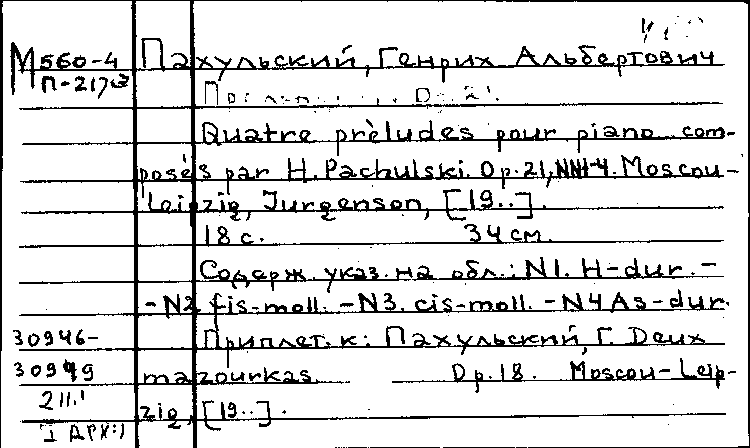 М560-4 Пахульский, Генрих Альбертович
П-217
Op. 21.
Quatre prèludes pour piano com-
posés par H. Pachulski. Op. 21, NN1-4. Moscou-
Leipzig, Jurgenson, [19..].
18 с. 34 см.
Содерж. указ. на обл.: N1. H-dur. -
- N2 fis-moll. - N3. cis-moll. - N4 As-dur.
30946- Приплет. к: Пахульский, Г. Deux
30949 mazourkas. Op. 18. Moscou-Leip-
zig, [19..].